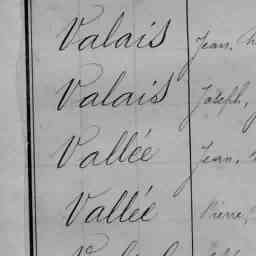 Valais Jean,
Valais Joseph,
Vallée Jean,
Vallée Pierre,